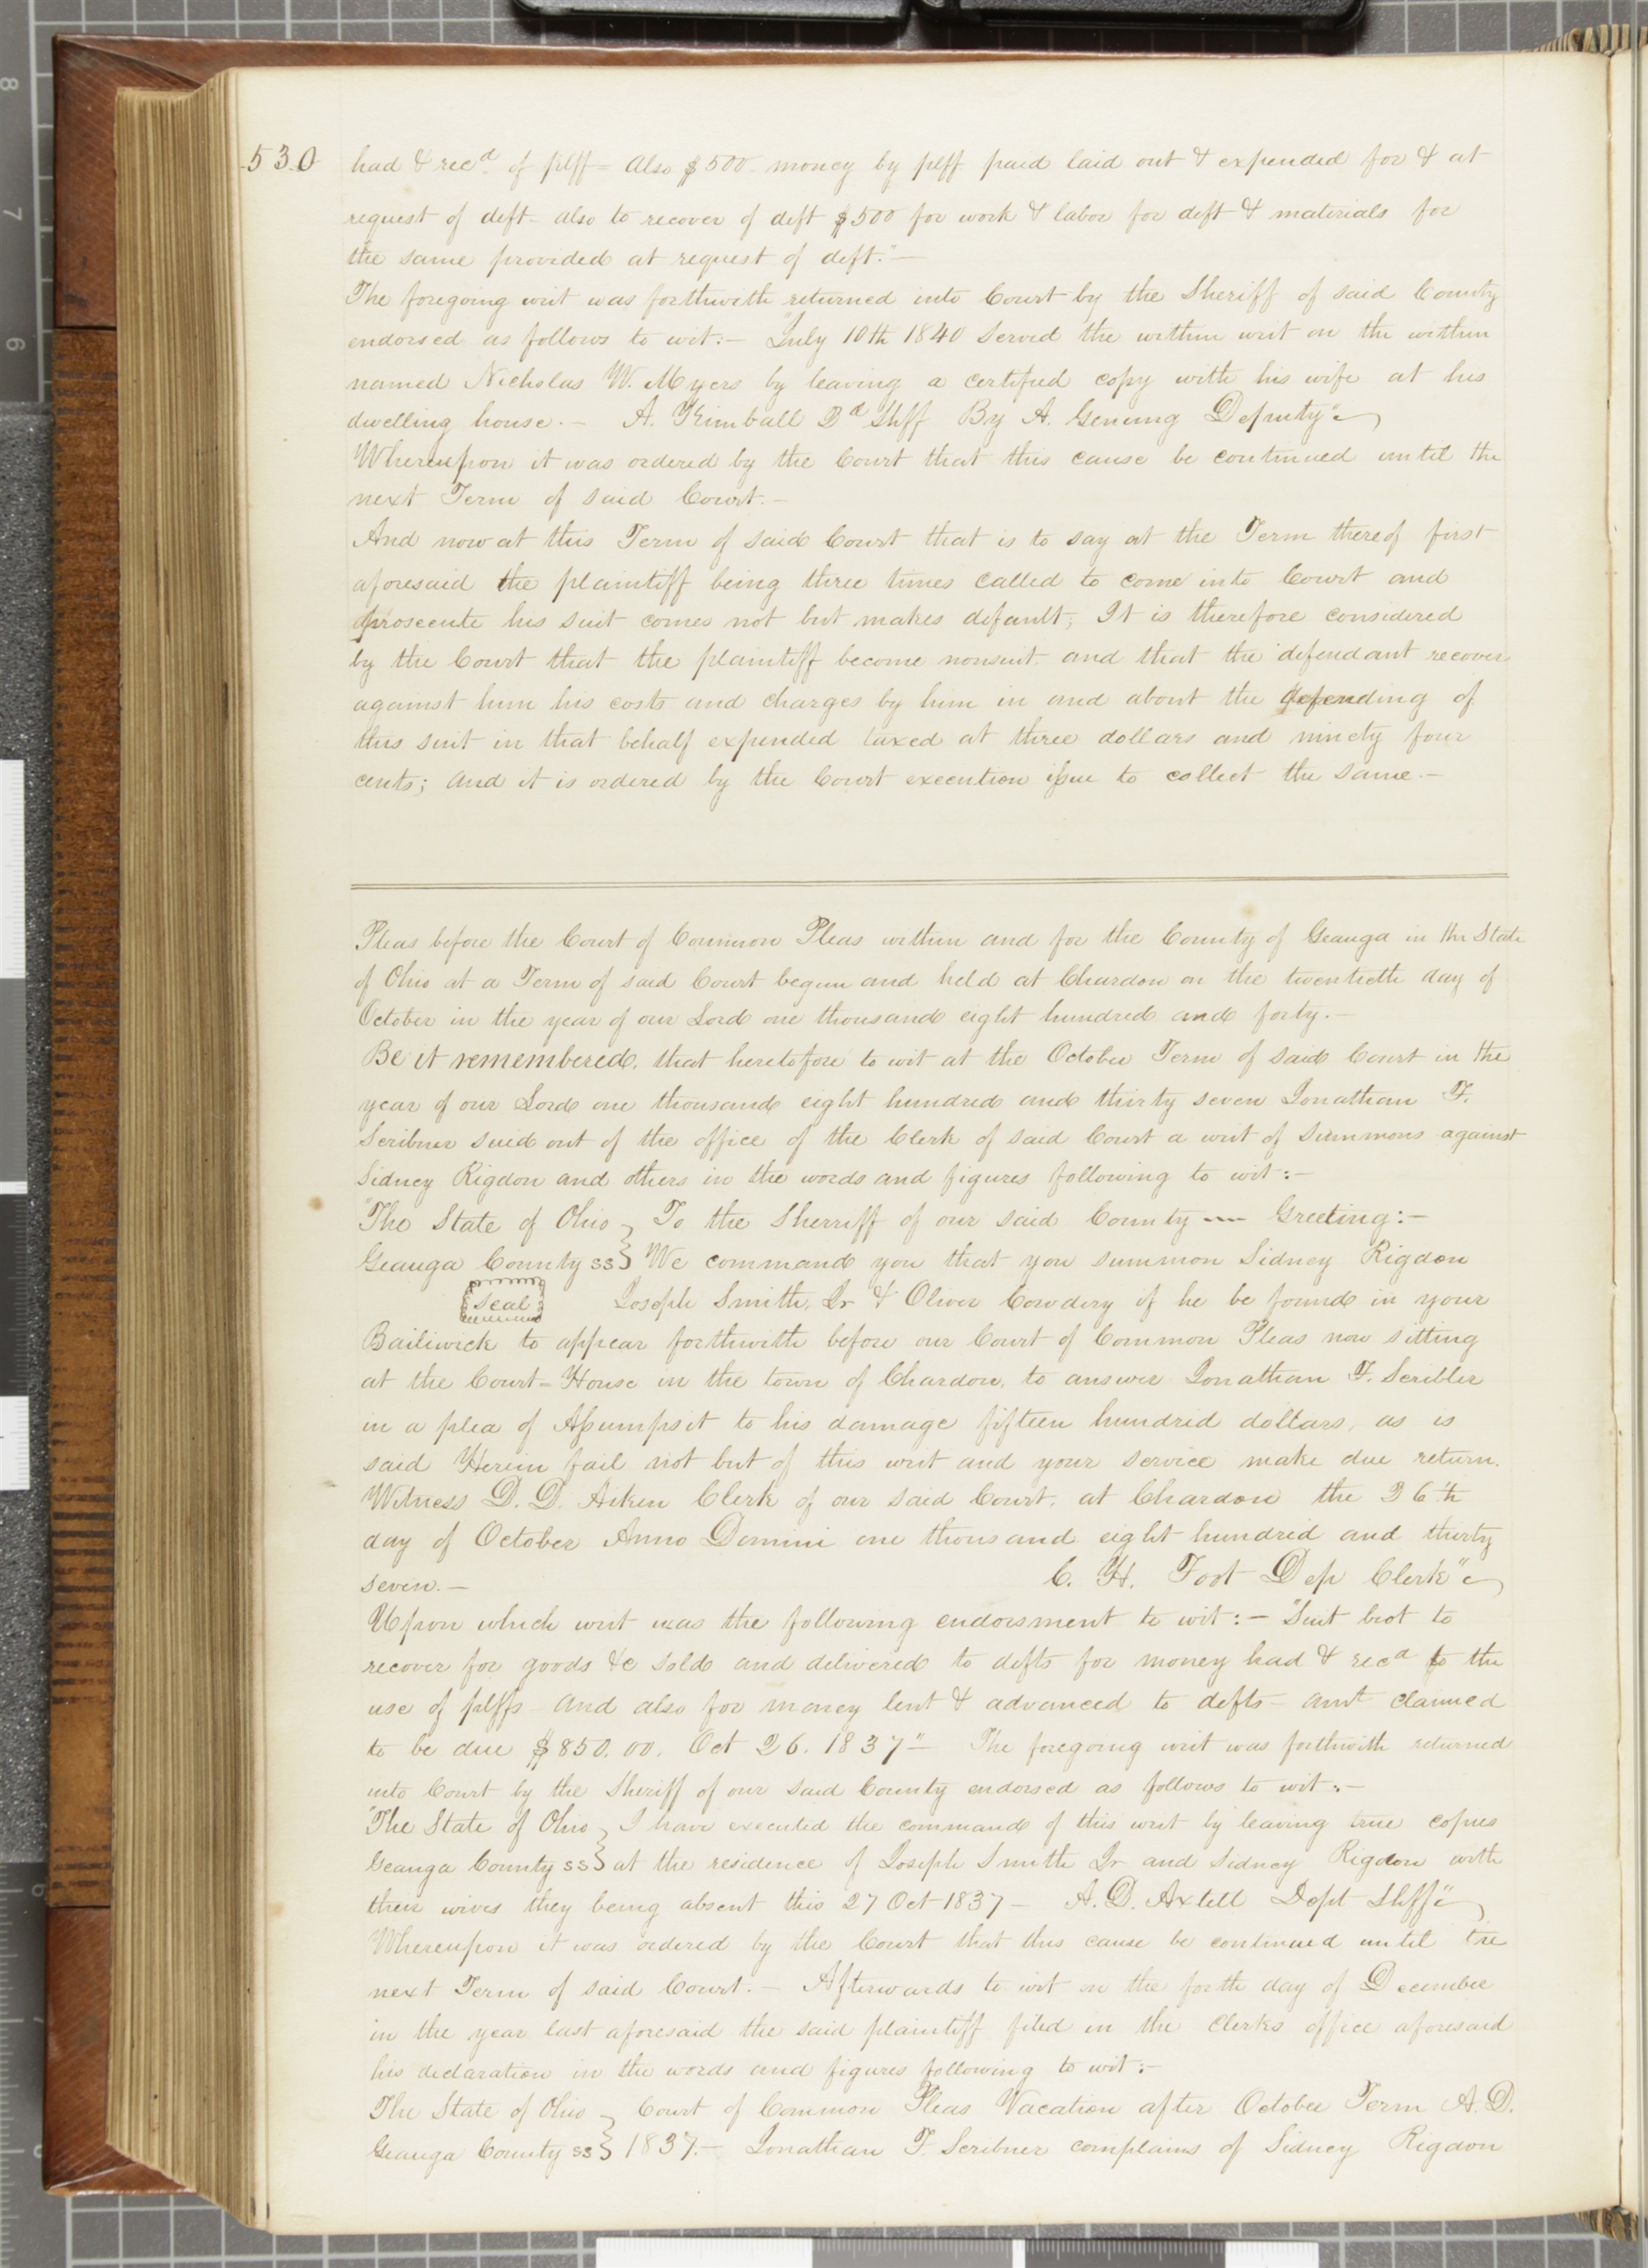 530
had & recd. of plff - Also $500 - money by plff paid laid out & expended for & at
request of deft - also to recover of deft $500 for work & labor for deft & materials for
the same provided at request of deft." -
The foregoing writ was forthwith returned into Court by the Sheriff of said County
endorsed as follows to wit:- "July 10th 1840 Served the within writ on the within
named Nicholas W. Myers by leaving a certified copy with his wife at his
dwelling house. - A. Kimball 2d Shff By A. Genung Deputy"
Whereupon it was ordered by the Court that this cause be continued until the
next Term of said Court. -
And now at this Term of said Court that is to say at the Term thereof first
aforesaid the plaintiff being three times called to come into Court and
prosecute his suit comes not but makes default; It is therefore considered
by the Court that the plaintiff become nonsuit and that the defendant recover
against him his costs and charges by him in and about the defending of
this suit in that behalf expended taxed at three dollars and ninety four
cents; and it is ordered by the Court execution issue to collect the same. -
Pleas before the Court of Common Pleas within and for the County of Geauga in the State
of Ohio at a Term of said Court begun and held at Chardon on the twentieth day of
October in the year of our Lord one thousand eight hundred and forty. -
Be it remembered, that heretofore to wit at the October Term of said Court in the
year of our Lord one thousand eight hundred and thirty seven Jonathan F.
Scribner sued out of the office of the Clerk of said Court a writ of summons against
Sidney Rigdon and others in the words and figures following to wit:-
"The State of Ohio } To the Sherriff of our said County --- Greeting:-
Geauga County ss } We command you that you summon Sidney Rigdon
Seal Joseph Smith, Jr & Oliver Cowdery if he be found in your
Bailiwick to appear forthwith before our Court of Common Pleas now sitting
at the Court-House in the town of Chardon, to answer Jonathan F. Scribler
in a plea of Assumpsit to his damage fifteen hundrid dollars, as is
said Herein fail not but of this writ and your service make due return.
Witness D. D. Aiken Clerk of our said Court, at Chardon the 26th
day of October Anno Domini one thousand eight hundrid and thirty
seven. - C. H. Foot Dep Clerk"
Upon which writ was the following endorsment to wit:- "Suit brot to
recover for goods &c sold and delivered to defts for money had & recd to the
use of plffs and also for money lent & advanced to defts - amt claimed
to be due $850.00. Oct 26. 1837" - The foregoing writ was forthwith returned
into Court by the Sheriff of our said County endorsed as follows to wit:-
"The State of Ohio } I have executed the command of this writ by leaving true copies
Geauga County ss } at the residence of Joseph Smith Jr and Sidney Rigdon with
their wives they being absent this 27 Oct 1837 - A. D. Axtell Dept Shff"
Whereupon it was ordered by the Court that this cause be continued until the
next Term of said Court. - Afterwards to wit on the forth day of December
in the year last aforesaid the said plaintiff filed in the Clerks office aforesaid
his declaration in the words and figures following to wit:-
The State of Ohio } Court of Common Pleas Vacation after October Term A.D.
Geauga County ss } 1837. - Jonathan F. Scribner complains of Sidney Rigdon